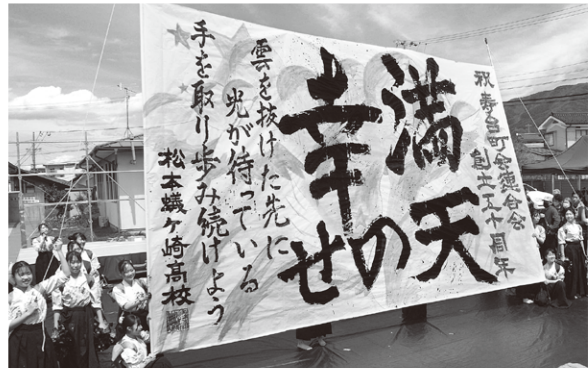 祝寿台町会連合会
創立五十周年
満天の
幸せ
雲を抜けた先に
光が待っている
手を取り歩み続けよう
松本蟻ヶ崎高校